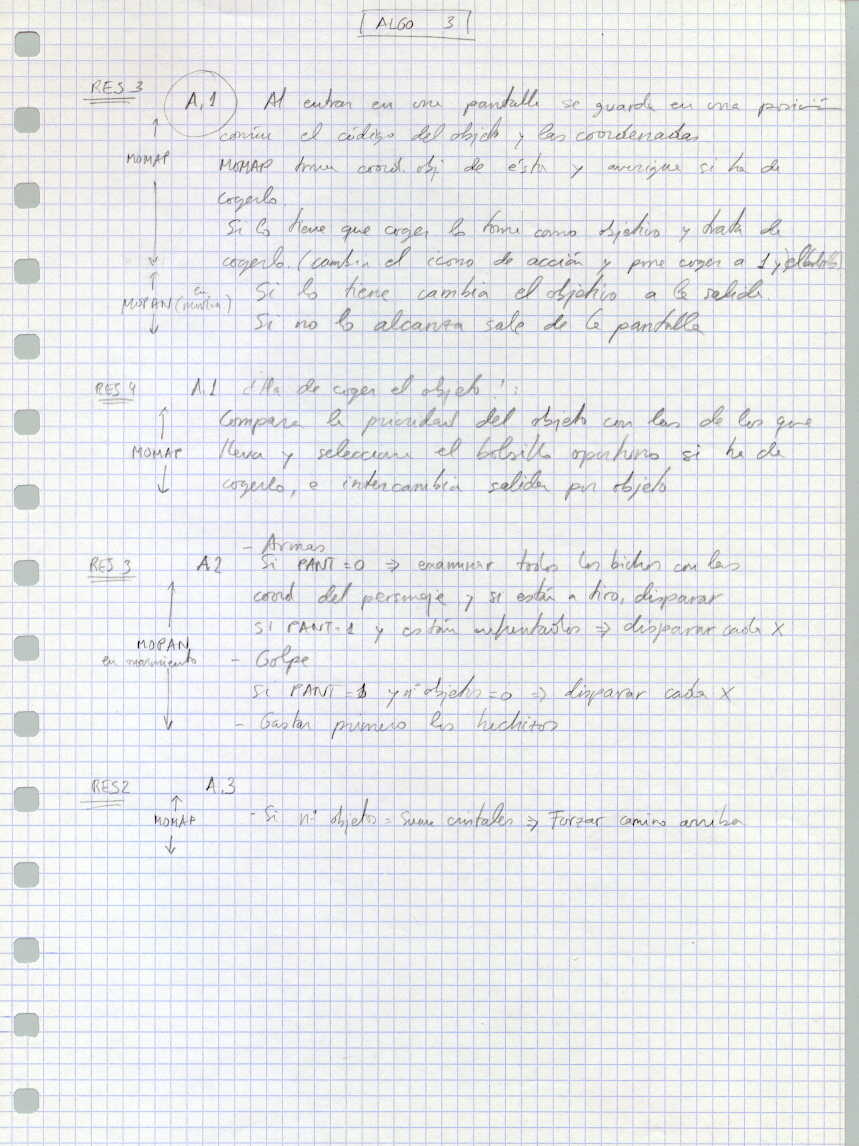 ALGO 3
RES 3
A,1 Al entrar en una pantalla se guarda en una posición
común el código del objeto y las coordenadas
MOMAP MOMAP toma coord. obj de ésta y averigua si ha de
cogerlo.
Si lo tiene que coger lo toma como objetivo y trata de
cogerlo. (cambia el icono de acción y pone coger a 1 y
MOPAN (en movim) Si lo tiene cambia el objetivo a la salida.
Si no lo alcanza sale de la pantalla
RES 4 A.1 ¿Ha de coger el objeto?:
Compara la prioridad del objeto con las de los que
MOMAP lleva y selecciona el bolsillo oportuno si ha de
cogerlo, e intercambia salida por objeto
- Armas
RES 3 A2 Si PANT=0 ⇒ examinar todos los bichos con las
coord del personaje y si están a tiro, disparar
Si PANT=1 y están ⇒ disparar cada X
MOPAN
en movimiento - Golpe
Si PANT=1 y nº objetos=0 ⇒ disparar cada X
- Gastar primero los hechizos
RES2 A.3
MOMAP - Si nº objetos = Suma cristales ⇒ Forzar camino arriba